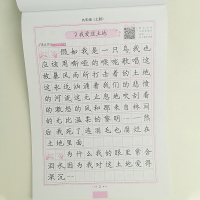 九年级(上册)
3 我爱这土地
假如我是一只鸟,我也
应该用嘶哑的喉咙歌唱这
被暴风雨所打击着的土地
这永远汹涌着我们的悲愤
的河流这无止息地吹刮着
的激怒的风和那来自林间
的无比温柔的黎明……一然后
我死了连羽毛也腐烂在
土地里面
为什么我的眼里常含
泪水因为我对这土地爱得
深沉…